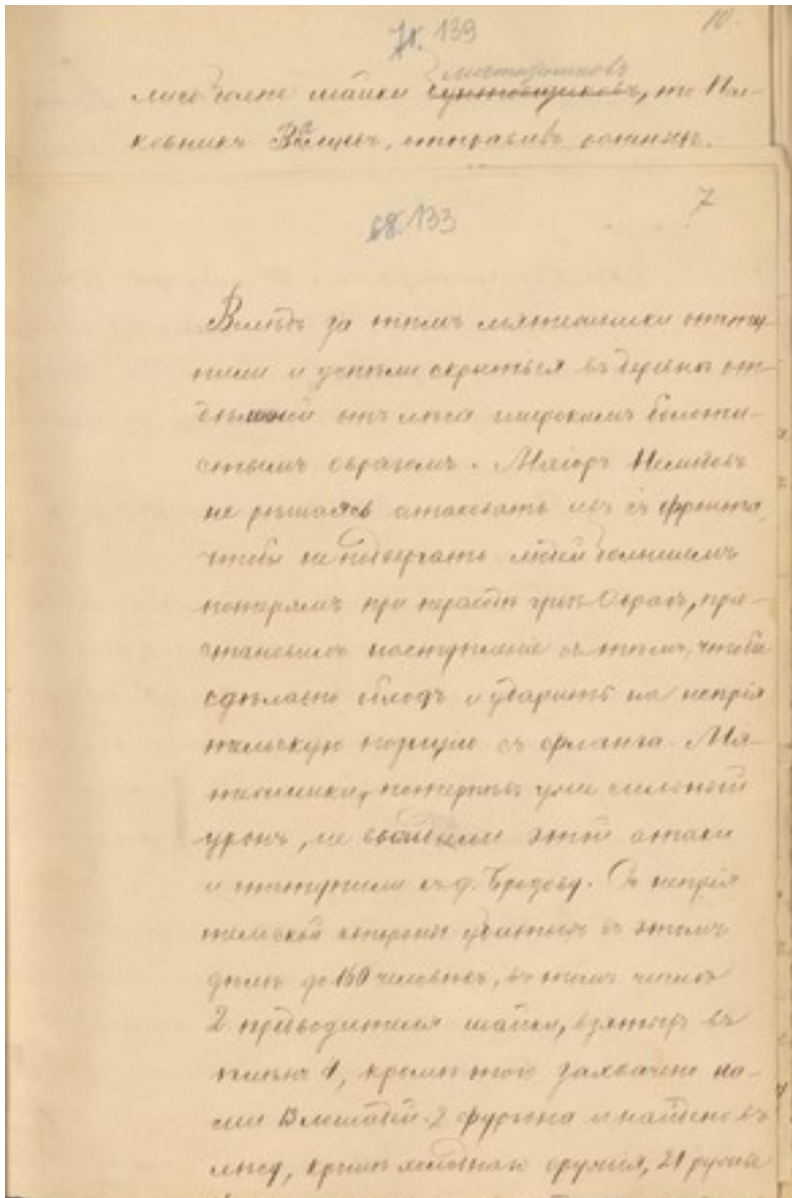 71. 139
10.
мятежниковъ
шайки сунтовщиковъ, то Пол-
ковникъ Валуевъ, отправивъ
68. 133
7
Вслѣдъ за тѣмъ мятежники отсту-
пили и успѣли скрыться въ деревнѣ от-
дѣленной отъ лѣса широкимъ болоти-
стымъ оврагомъ. Маіоръ Нелидовъ
не рѣшаясь атаковать ихъ съ фронта,
чтобы не подвергать людей большимъ
потерямъ при переходѣ чрезъ оврагъ, прі-
становилъ наступленіе съ тѣмъ, чтобы
сдѣлать обходъ и ударить на непрія
тельскую позицію съ фланга. Мя-
тежники, потерпѣвъ уже сильный
уронъ, не выждали этой атаки
и отступили къ д. Бродову. Съ непрія
тельской стороны убитыхъ въ этомъ
дѣлѣ до 150 человѣкъ, въ томъ числѣ
2 предводителя шайки, взятыхъ въ
плѣнъ 1, кромѣ того захвачено на-
ми 13 лошадей 2 фургона и найдено въ
лѣсу, кромѣ холоднаго оружія, 21 ружье